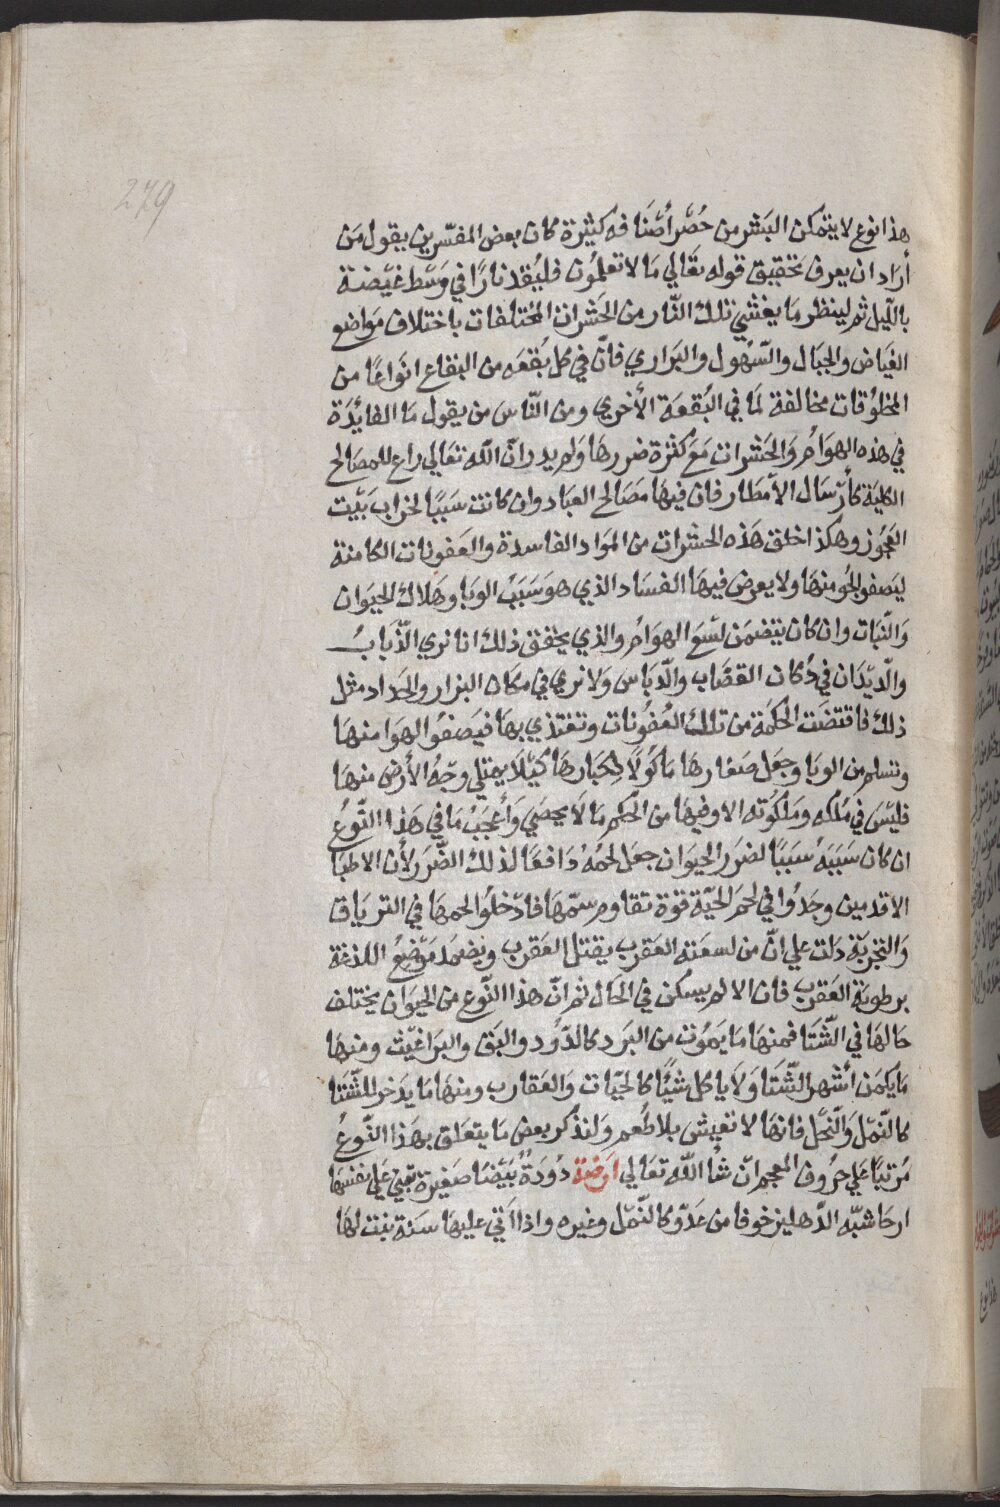 279
هذا نوع لا يتمكن البَشر من حُصْر أصْنَافه كثيرة كان بعض المفسّرين يقول مَن
أرَاد ان يعرف تحقيق قوله تعَالي مَا لا تعلمُون فليُقد نارًا في وَسْط غيْضة
بالليْل ثم لينظر مَا يغشي تلك النّار من الحَشرات المُختلفات باختلاف موَاضع
الغيَاض والجبَال والسّهُول والبَراري فانّ في كل بُقعَه من البقاع انوَاعًا من
المخلوُقات مخالفة لمَا في البُقعَة الأخري ومن النّاس من يقول مَا الفائدَة
في هذه الهوَامُ وَالحَشرات مَعَ كثرة ضررهَا وَلم يدر انّ الله تعَالي راع للمصَالح
الكليَة كأرْسَال الأمْطَار فان فيهَا مَصَالح العبَاد وان كانت سَببًا لخراب بَيْت
العَجُوز وهكذا خلق هَذه الحشرات من الموَاد الفاسدة والعَفونات الكامنة
ليَصفو الجُو منهَا ولا يعرض فيهَا الفسَاد الذي هوَ سَبَبُ الوبَا وهَلاك الحيَوان
وَالنّبَات وان كان يتضمَن لسْعَ الهوَامُ والذي يحقق ذلك انا نري الذّبَابُ
والدّيْدَان في دُكان القصَاب والدّبَاس وَلا نري في مكَان البزار والحَداد مثل
ذلك فاقتضَت الحكمَة من تلك العُفوُنات وتغتذي بهَا فيَصفوُ الهوَا منهَا
وتسلم من الوبَا وجعَل صغارهَا مَاكوُلًا لكبَارهَا كيْلَا يمتلي وجْهُ الأرْض منهَا
فليْسَ في مُلكه ومَلكوُته الا وفيهَا من الحكم مَا لَا يحصَي وَأعْجَبُ مَا في هَذا النّوعُ
ان كان سَبَبَهُ سَببًا لضرَر الحيَوان جعَل لحمُهُ دَافعَا لذلك الضّرَر لأن الاطبَا
الاقدمين وجَدُوا في لحم الحيّة قوة تقاوم سمّهَا فادْخلوُا لحمهَا في الترياق
وَالتجربَة دَلت علي انّ من لسعَته العَقرب يقتل العَقرب ويضمَد مَوْضعُ اللدْغة
برطوبَة العَقرب فان الالم يسكن في الحَال ثم انّ هذا النّوع من الحيَوان يختلف
حَالهَا في الشّتَا فمنهَا مَا يَموُت من البَرد كالدّوُد والبَق والبَراغيْث ومنهَا
مَا يكمَن أشهر الشّتَا وَلا يَاكل شيْئًا كالحيّات وَالعَقارب ومنهَا مَا يدَخر للشّتَا
كالنّمْل وَالنّحْل فانهَا لا تعيش بلا طُعم وَلنذكر بعض مَا يتعَلق بهَذا النّوعُ
مُرتبًا عَلي حرُوف المعجم انّ شَا الله تعَالي ارَضة دُودَةٌ بَيْضَا صَغيرة تبني عَلي نفسهَا
ارحَا شبّه الدّهليز خوفا من عَدّو كالنّمْل وغيره واذا أتي عليهَا سَنة ينبت لهَا